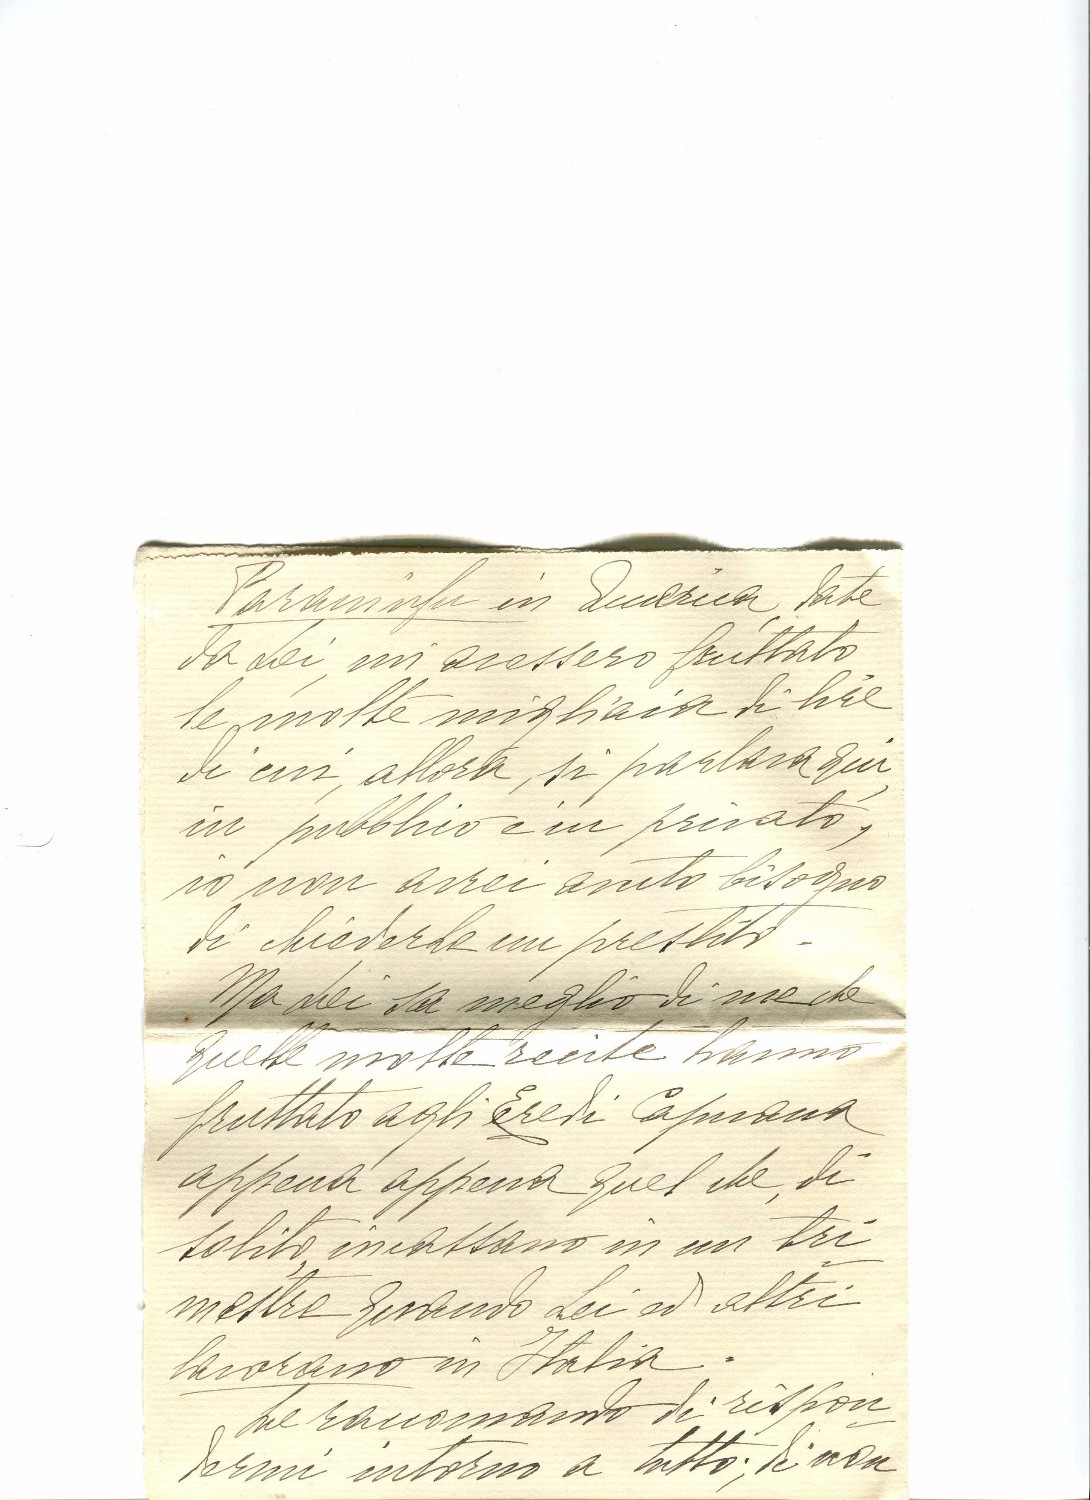 Paraninfu in America, date
da Lei, mi avessero fruttato
le molte migliaia di lire
di cui, allora, si parlava qui,
in pubblico e in privato,
io non avrei avuto bisogno
di chiederLe un prestito -
Ma Lei sa meglio di me che
quelle molte recite hanno
fruttato agli Eredi Capuana
appena appena quel che, di
solito, incassano in un tri
mestre quando Lei ed altri
lavorano in Italia.
Le raccomando di rispon
dermi intorno a tutto; di non